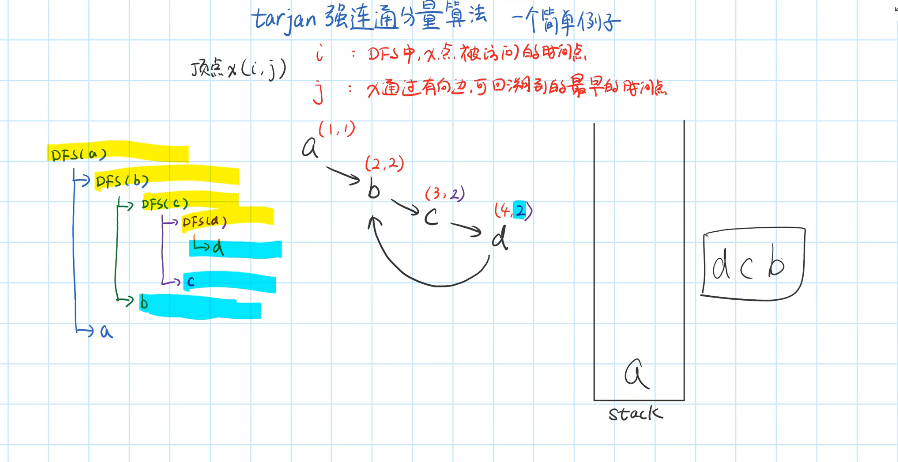 tarjan 强连通分量算法 一个简单例子
顶点x(i,j)
i : DFS中,x点被访问的时间点
j : x通过有向边,可回溯到的最早的时间点
DFS(a)
DFS(b)
DFS(c)
DFS(d)
d
c
b
a
a (1,1)
b (2,2)
c (3,2)
d (4,2)
a
stack
d c b